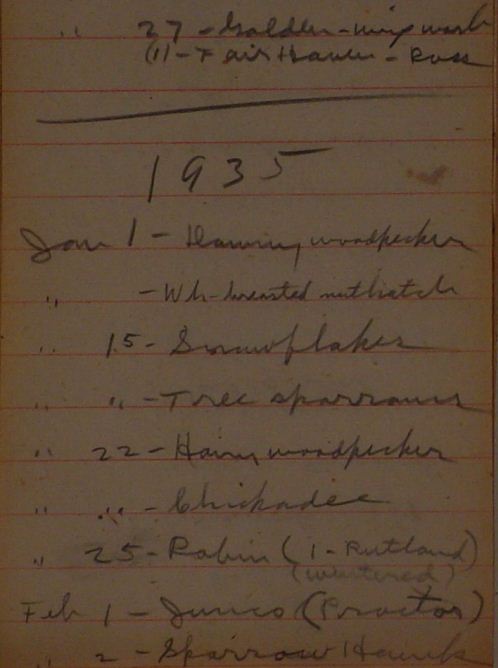 " 27 - Golden-wing warb
(") - Fair Haven - Ross
1935
Jan 1 - Downy woodpecker
" - Wh-breasted nuthatch
" 15 - Snowflakes
" " - Tree sparrows
" 22 - Hairy woodpecker
" " - Chickadee
" 25 - Robin (1 - Rutland)
(wintered)
Feb 1 - Junco (Proctor)
" 2 - Sparrow Hawk